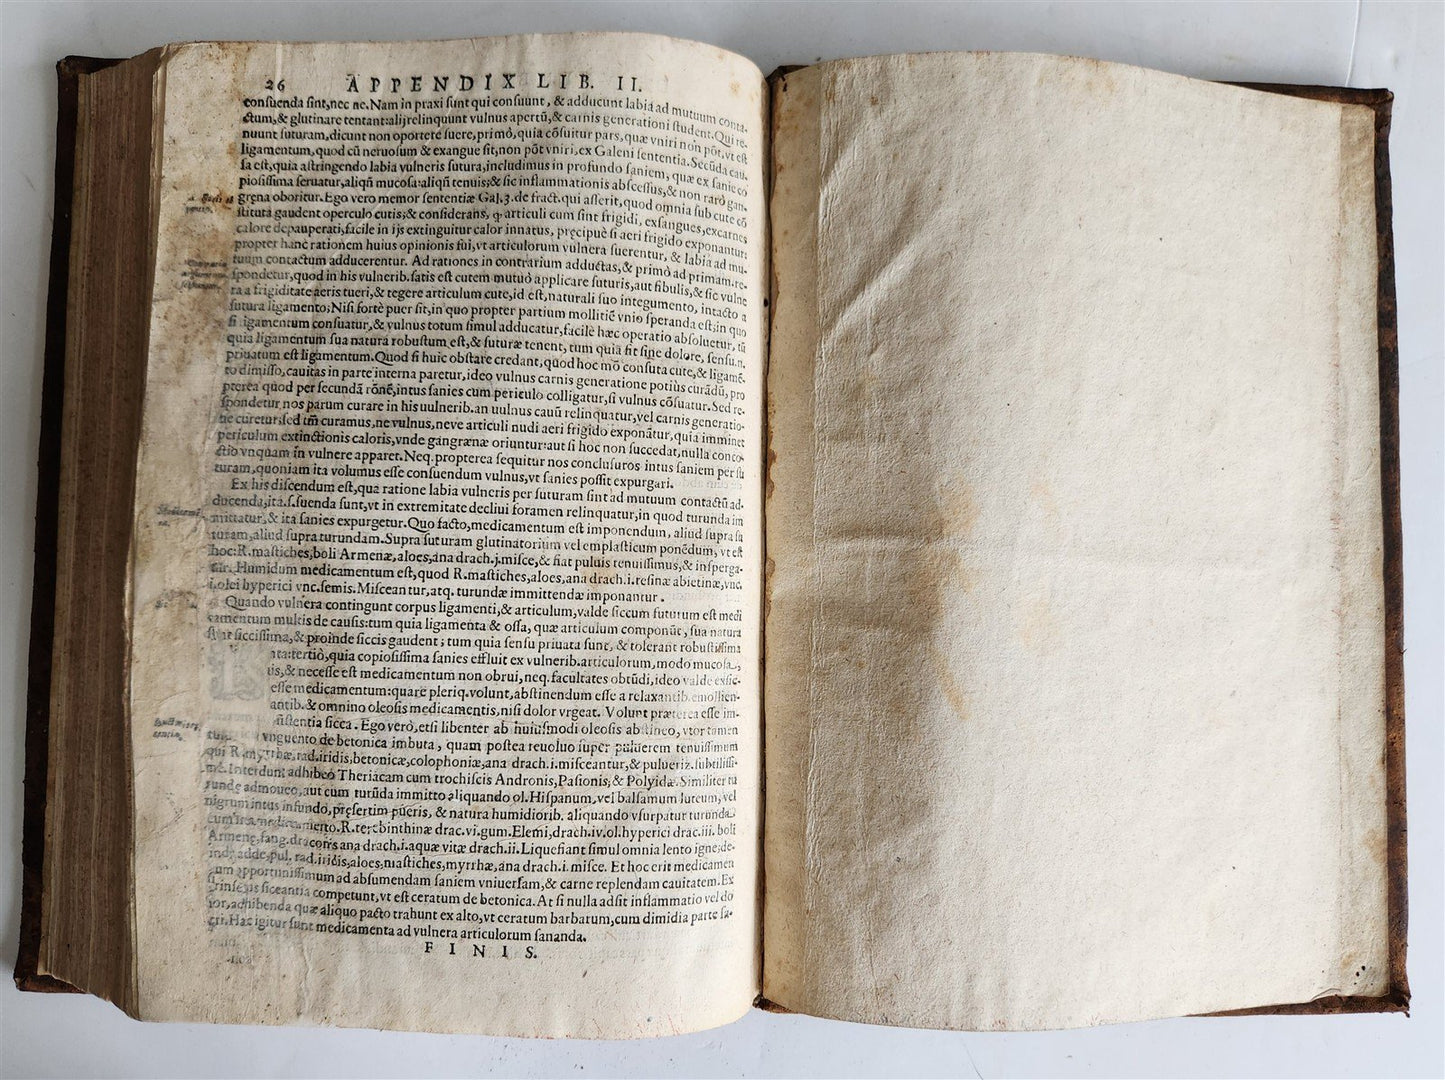 26 APPENDIX LIB. II.
consuenda sint, nec ne. Nam in praxi sunt qui consuunt, & adducunt labia ad mutuum conta-
ctum, & glutinare tentant: alij relinquunt vulnus apertū, & carnis generationi student. Qui re-
nuunt suturam, dicunt non oportere suere, primò, quia cōsuitur pars, quæ vniri non pōt, vt est
ligamentum, quod cū neruosum & exangue sit, non pōt vniri, ex Galeni sententia. Secūda cau-
sa est, quia astringendo labia vulneris sutura, includimus in profundo saniem, quæ ex sanie co
piosissima seruatur, aliqñ mucosa: aliqñ tenuis; & sic inflammationis abscessus, & non rarò gan-
grena oboritur. Ego vero memor sententiæ Gal. 3. de fract. qui asserit, quod omnia sub cute cō
stituta gaudent operculo cutis; & considerans, ꝙ articuli cum sint frigidi, exsangues, excarnes
calore depauperati, facile in ijs extinguitur calor innatus, pręcipuè si aeri frigido exponantur:
propter hanc rationem huius opinionis fui, vt articulorum vulnera suerentur, & labia ad mu-
tuum contactum adducerentur. Ad rationes in contrarium adductas, & primò ad primam. re-
spondetur, quod in his vulnerib. satis est cutem mutuò applicare suturis, aut fibulis, & sic vulne
ra a frigiditate aeris tueri, & tegere articulum cute, id est, naturali suo integumento, intacto a
sutura ligamento; Nisi fortè puer sit, in quo propter partium mollitiē vnio speranda est; in quo
si ligamentum consuatur, & vulnus totum simul adducatur, facilè hæc operatio absoluetur, tū
quia ligamentum sua natura robustum est, & suturæ tenent, tum quia fit sine dolore, sensu. n.
priuatum est ligamentum. Quod si huic obstare credant, quod hoc mō consuta cute, & ligamē-
to dimisso, cauitas in parte interna paretur, ideo vulnus carnis generatione potiùs curādū, pro
pterea quod per secundā rōnē, intus sanies cum periculo colligatur, si vulnus cōsuatur. Sed re-
spondetur nos parum curare in his uulnerib. an uulnus cauū relinquatur, vel carnis generatio-
ne curetur: sed tm̄ curamus, ne vulnus, neve articuli nudi aeri frigido exponātur, quia imminet
periculum extinctionis caloris, vnde gangrænæ oriuntur: aut si hoc non succedat, nulla conco-
ctio vnquam in vulnere apparet. Neq. propterea sequitur nos conclusuros intus saniem per su
turam, quoniam ita volumus esse consuendum vulnus, vt sanies possit expurgari.
Ex his discendum est, qua ratione labia vulneris per suturam sint ad mutuum contactū ad-
ducenda, ita. s. suenda sunt, vt in extremitate decliui foramen relinquatur, in quod turunda im
mittatur, & ita sanies expurgetur. Quo facto, medicamentum est imponendum, aliud supra su
turam, aliud supra turundam. Supra suturam glutinatorium vel emplasticum ponēdum, vt est
hoc: R. mastiches, boli Armenæ, aloes, ana drach. j. misce, & fiat puluis tenuissimus, & insperga-
tur. Humidum medicamentum est, quod R. mastiches, aloes, ana drach. i. resinæ abietinæ, vnc.
i. olei hyperici vnc. semis. Misceantur, atq. turundæ immittendæ imponantur.
Quando vulnera contingunt corpus ligamenti, & articulum, valde siccum futurum est medi
camentum multis de causis: tum quia ligamenta & ossa, quæ articulum componūt, sua natura
sunt siccissima, & proinde siccis gaudent; tum quia sensu priuata sunt, & tolerant robustissima
ta: tertiò, quia copiosissima sanies effluit ex vulnerib. articulorum, modo mucosa,
is, & necesse est medicamentum non obrui, neq. facultates obtūdi, ideo valde exsic-
esse medicamentum: quare pleriq. volunt, abstinendum esse a relaxantib. emollien-
antib. & omnino oleosis medicamentis, nisi dolor vrgeat. Volunt præterea esse im-
sistentia sicca. Ego verò, etsi libenter ab huiusmodi oleosis abstineo, vtor tamen
vnguento de betonica imbuta, quam postea reuoluo super puluerem tenuissimum
qui R. myrrhæ, rad. iridis, betonicæ, colophoniæ, ana drach. i. misceantur, & pulueriz. subtilissi-
mè. Interdum adhibeo Theriacam cum trochiscis Andronis, Pasionis, & Polyidæ. Similiter tu
rundę admoueo, aut cum turūda immitto aliquando ol. Hispanum, vel balsamum luteum, vel
nigrum intus infundo, pręsertim pueris, & natura humidiorib. aliquando vsurpatur turunda
cum isto medicamento. R. terebinthinæ drac. vi. gum. Elemi, drach. iv. ol. hyperici drac. iii. boli
Armenę, sang. draconis ana drach. i. aquæ vitæ drach. ii. Liquefiant simul omnia lento igne; de-
indę adde, pul. rad. iridis, aloes, mastiches, myrrhæ, ana drach. i. misce. Et hoc erit medicamen
tum opportunissimum ad absumendam saniem vniuersam, & carne replendam cauitatem. Ex
siceantia competunt, vt est ceratum de betonica. At si nulla adsit inflammatio vel do
lor, adhibenda quæ aliquo pacto trahunt ex alto, vt ceratum barbarum, cum dimidia parte sa-
cri. Hæc igitur sunt medicamenta ad vulnera articulorum sananda.
FINIS.